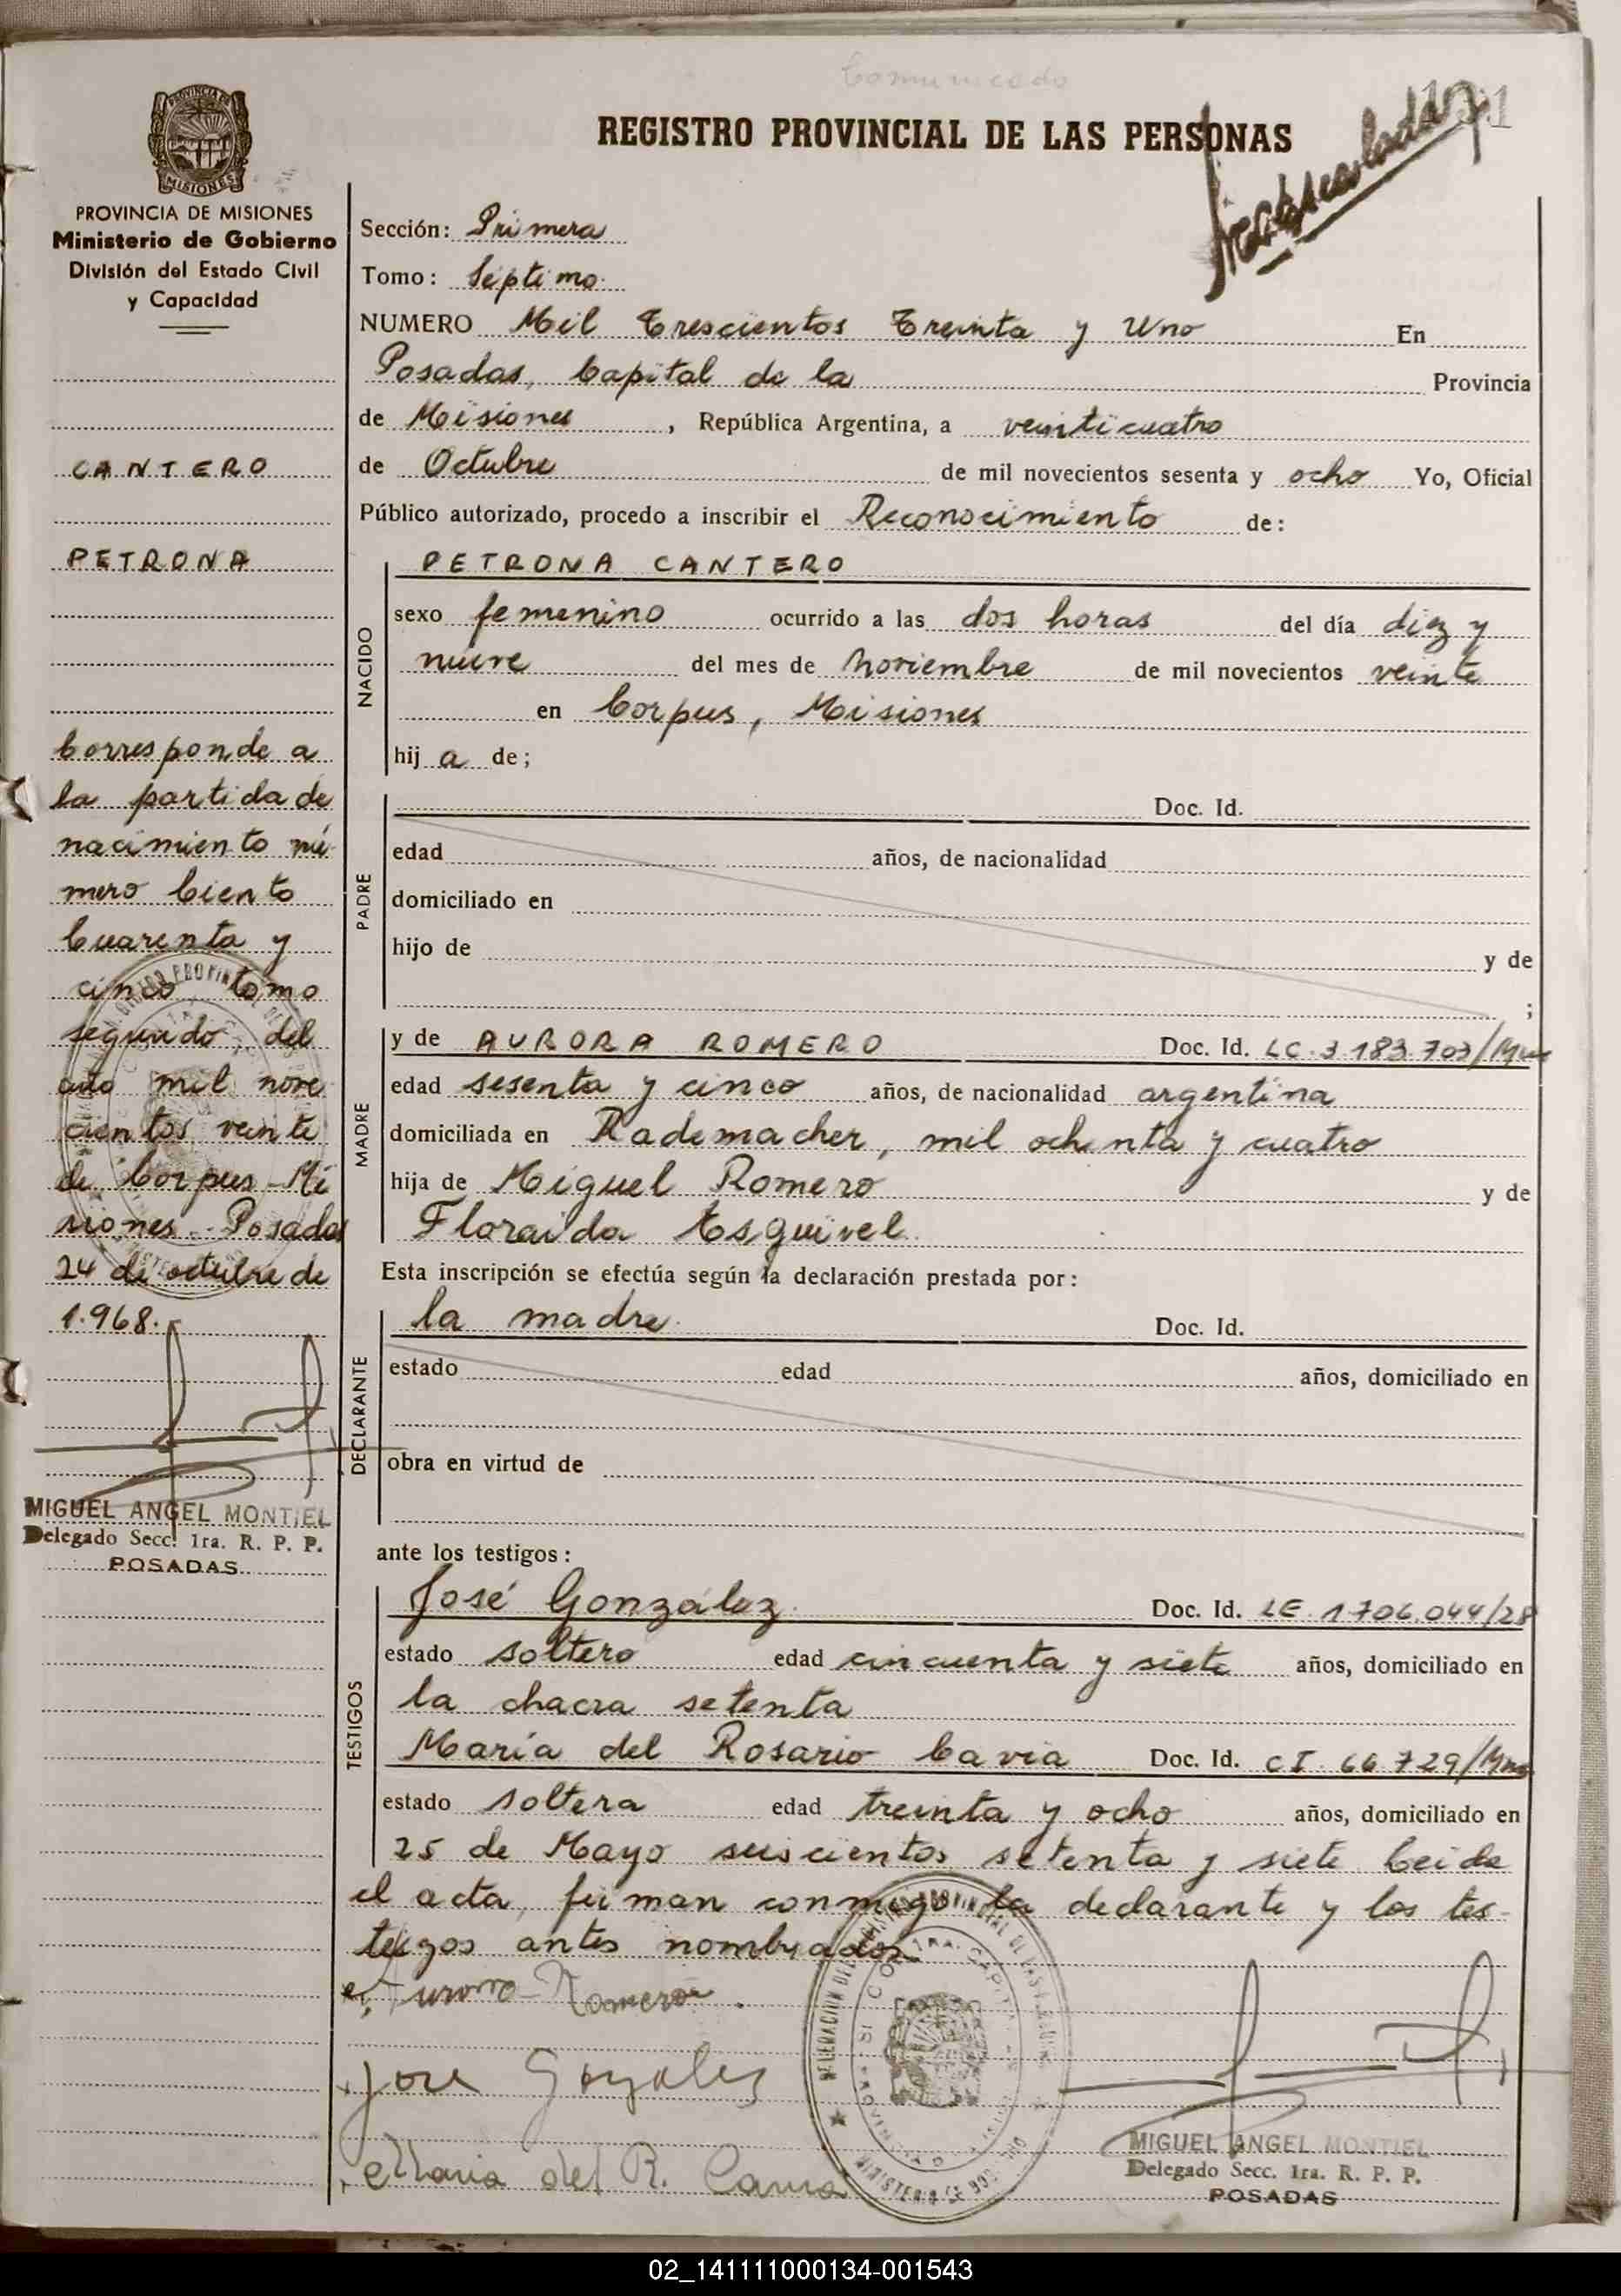 Comunicado
REGISTRO PROVINCIAL DE LAS PERSONAS
PROVINCIA DE
MISIONES
PROVINCIA DE MISIONES
Ministerio de Gobierno
División del Estado Civil
y Capacidad
CANTERO
PETRONA
Corresponde a
la partida de
nacimiento nú-
mero Ciento
Cuarenta y
cinco tomo
segundo del
año mil nove
cientos veinte
de Corpus-Mi
siones.- Posadas
24 de octubre de
1.968.-
MIGUEL ANGEL MONTIEL
Delegado Secc. 1ra. R. P. P.
POSADAS
Sección: Primera
Tomo: Séptimo.
NUMERO Mil Trescientos Treinta y Uno En
Posadas, Capital de la Provincia
de Misiones, República Argentina, a veinticuatro
de Octubre de mil novecientos sesenta y ocho Yo, Oficial
Público autorizado, procedo a inscribir el Reconocimiento de:
NACIDO
PETRONA CANTERO
sexo femenino ocurrido a las dos horas del día diez y
nueve del mes de noviembre de mil novecientos veinte
en Corpus, Misiones
hij a de;
PADRE
Doc. Id.
edad años, de nacionalidad
domiciliado en
hijo de y de
;
MADRE
y de AURORA ROMERO Doc. Id. LC. 3.183.703/Mnes
edad sesenta y cinco años, de nacionalidad argentina
domiciliada en Rademacher, mil ochenta y cuatro
hija de Miguel Romero y de
Floraida Esquivel.
Esta inscripción se efectúa según la declaración prestada por:
DECLARANTE
la madre. Doc. Id.
estado edad años, domiciliado en
obra en virtud de
ante los testigos:
TESTIGOS
José González. Doc. Id. LE. 1.706.044/28
estado soltero edad cincuenta y siete años, domiciliado en
la chacra setenta
María del Rosario Cavia Doc. Id. CI. 66.729/Mnes
estado soltera edad treinta y ocho años, domiciliado en
25 de Mayo seiscientos setenta y siete. Leida
el acta, firman conmigo la declarante y los tes-
tigos antes nombrados.
Aurora Romero.
Jose Gonzalez
Maria del R. Cavia
MIGUEL ANGEL MONTIEL
Delegado Secc. 1ra. R. P. P.
POSADAS
02_141111000134-001543